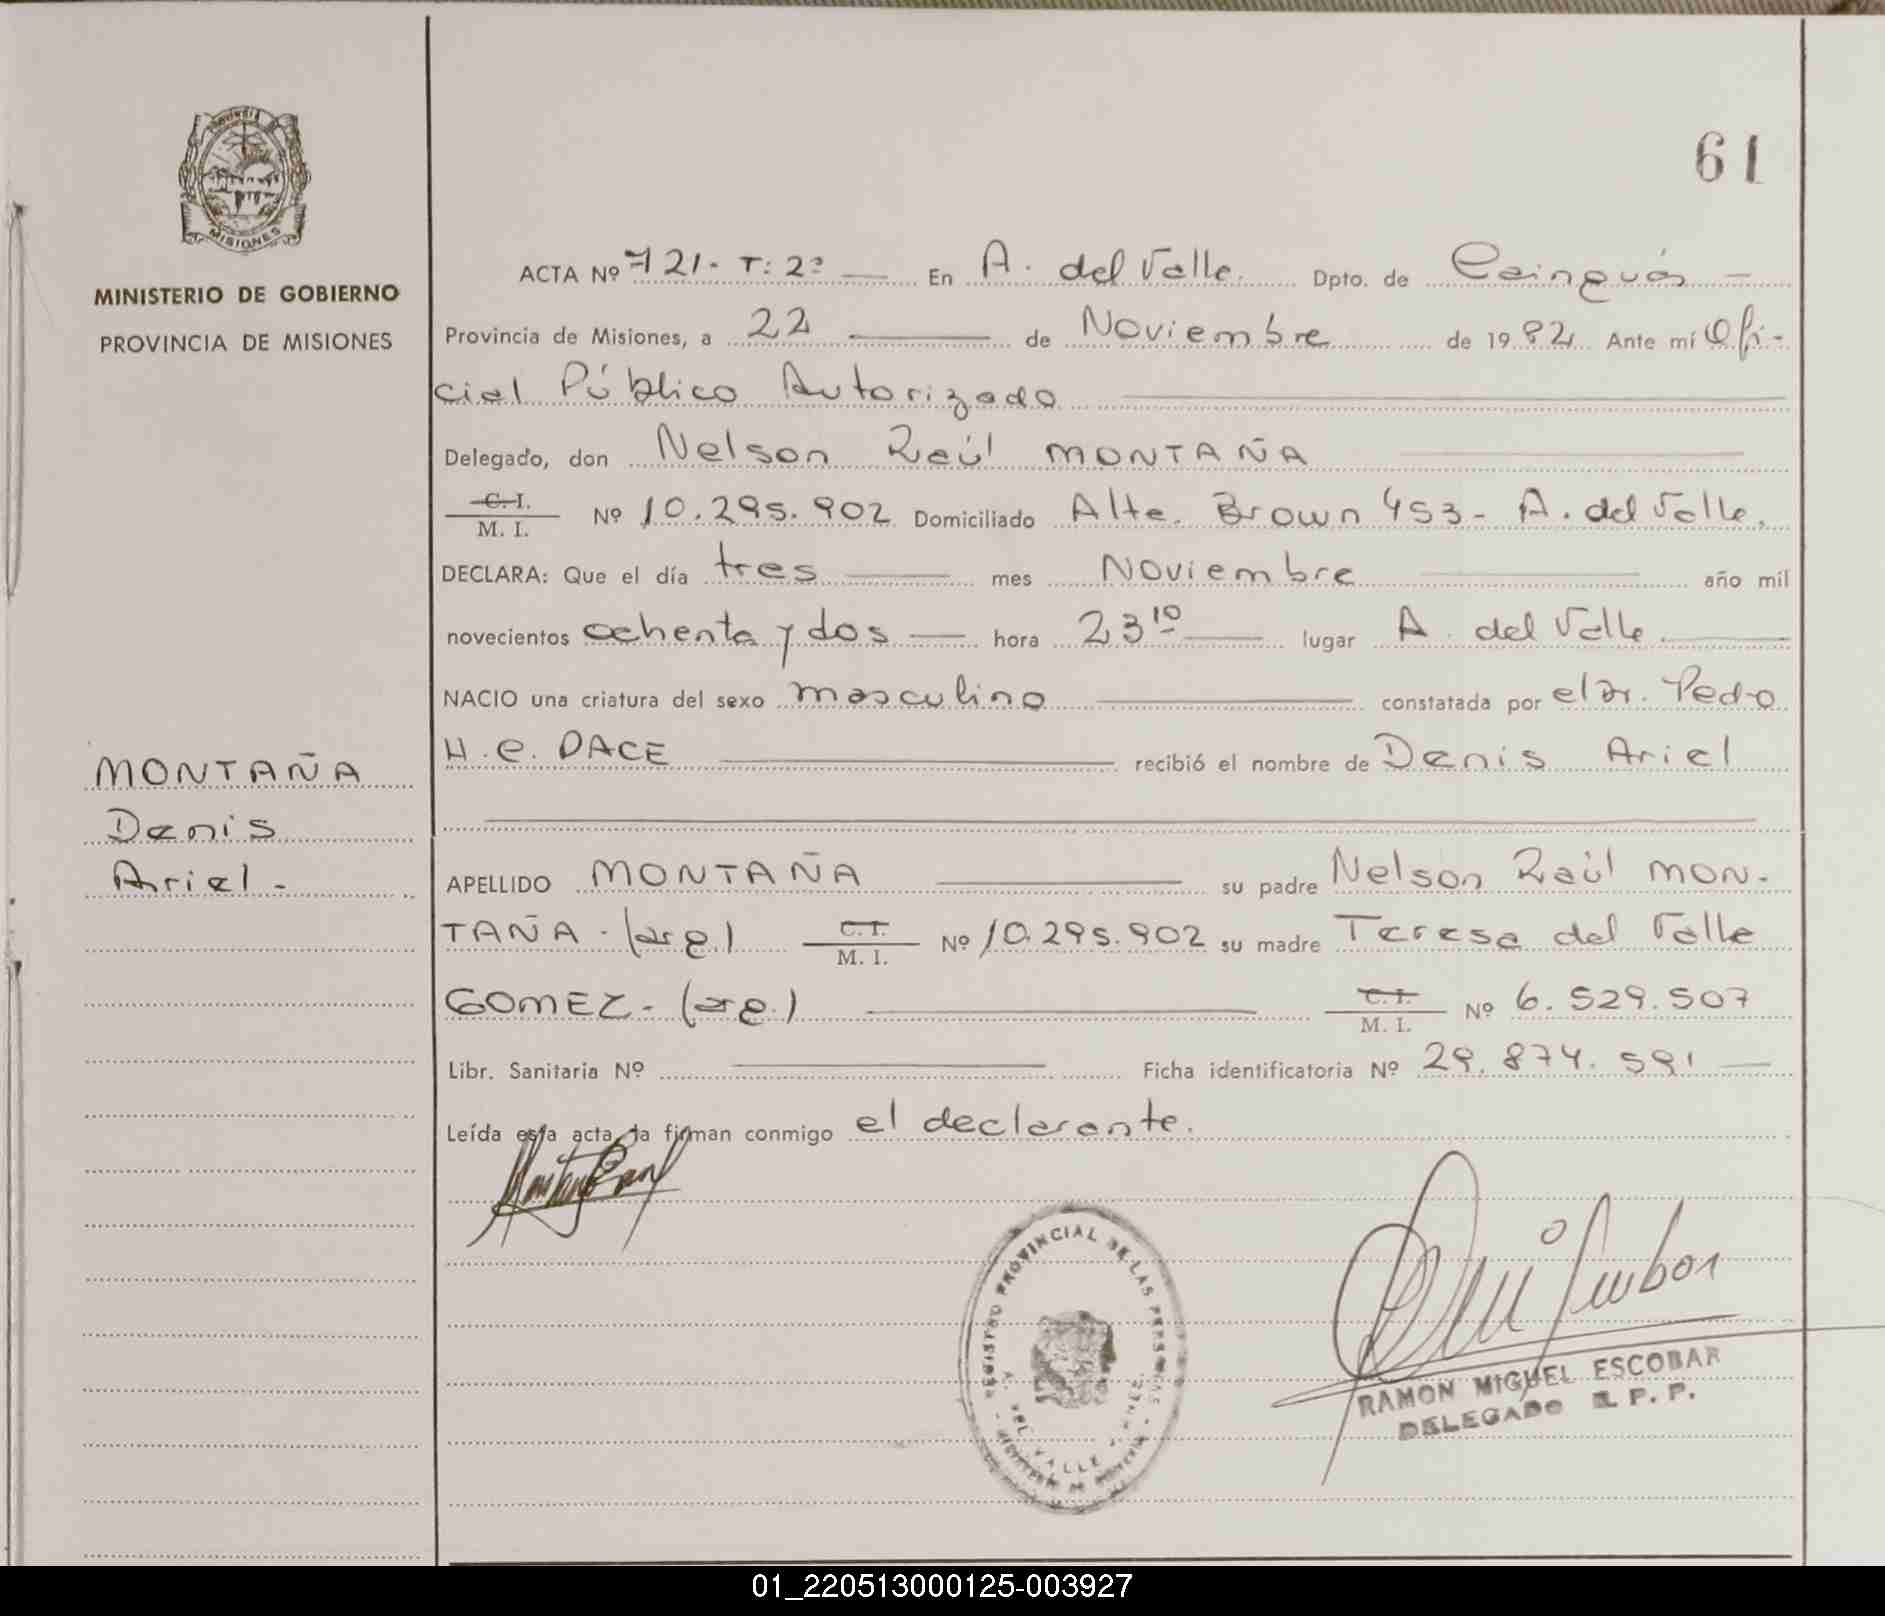 61
MISIONES
MINISTERIO DE GOBIERNO
PROVINCIA DE MISIONES
MONTAÑA
Denis
Ariel -
ACTA Nº 721- T: 2º — En A. del Valle. Dpto. de Cainguás —
Provincia de Misiones, a 22 — de Noviembre de 1982 Ante mí Ofi-
cial Público Autorizado —
Delegado, don Nelson Raúl MONTAÑA —
C. I. / M. I. Nº 10.295.902 Domiciliado Alte. Brown 453 - A. del Valle.
DECLARA: Que el día tres — mes Noviembre — año mil
novecientos ochenta y dos — hora 23 10 — lugar A. del Valle —
NACIO una criatura del sexo masculino — constatada por el Dr. Pedro
H. C. DACE — recibió el nombre de Denis Ariel
APELLIDO MONTAÑA — su padre Nelson Raúl MON-
TAÑA - (arg.) C. I. / M. I. Nº 10.295.902 su madre Teresa del Valle
GOMEZ - (arg.) — C. I. / M. I. Nº 6.529.507
Libr. Sanitaria Nº — Ficha identificatoria Nº 29.874.591 —
Leída esta acta la firman conmigo el declarante.
REGISTRO PROVINCIAL DE LAS PERSONAS
A. DEL VALLE
RAMON MIGUEL ESCOBAR
DELEGADO R. P. P.
01_220513000125-003927